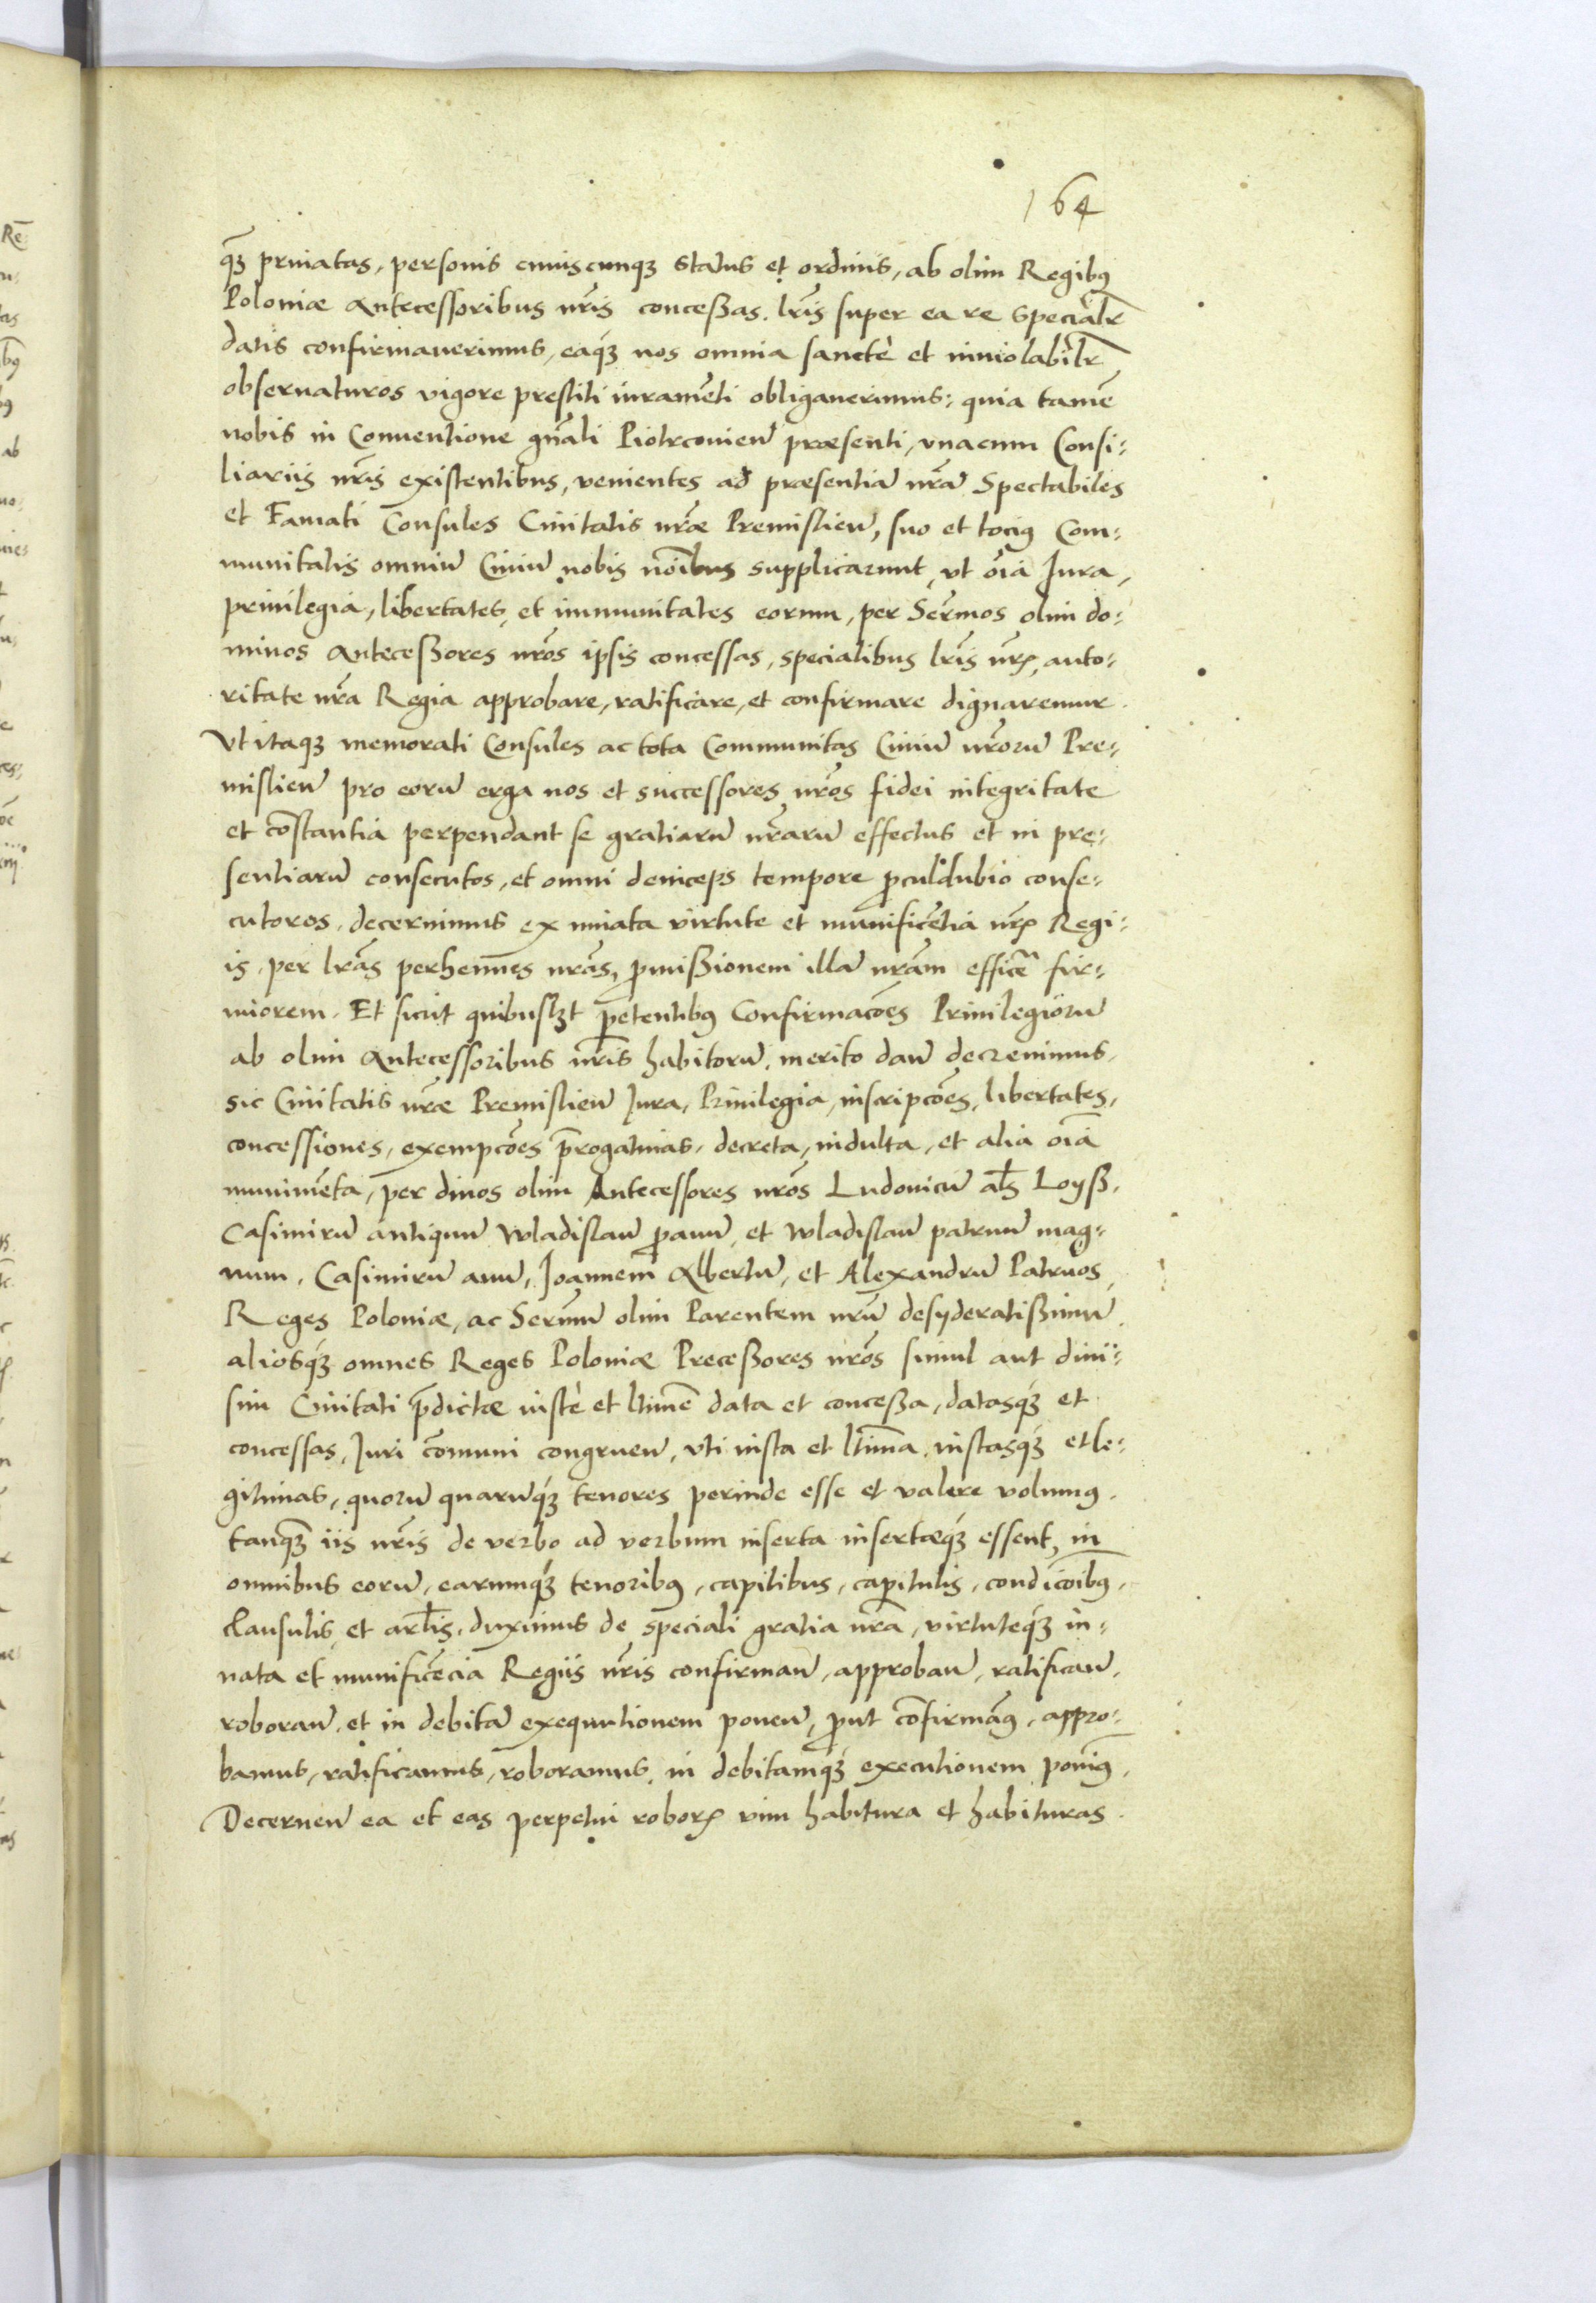 164
q̃ȝ priuatas, personis cuiuscunqȝ status et ordinis, ab olim Regibꝯ
Poloniæ Antecessoribus nr̃is conceßas. lr̃is super ea re specialr̃
datis confirmauerimus, eaq́ȝ nos omnia sanctè et inuiolabilr̃
obseruaturos vigore prestiti iuramẽti obligauerimus: quia tamẽ
nobis in Conuentione gñali Piotrcouien̄ præsenti, vnacum Consi:
liariis nr̃is existentibus, venientes ad præsentiã nr̃ã Spectabiles
et Famati Consules Ciuitatis nr̃æ Premislien̄, suo et tociꝯ Com:
munitatis omniũ Ciuiũ nobis noĩbus supplicarunt, vt oĩa Jura,
priuilegia, libertates, et immunitates eorum, per Serm̃os olim do:
minos Anteceßores nr̃os ipsis concessas, specialibus lr̃is nr̃ꝭ, auto:
ritate nr̃a Regia approbare, ratificare, et confirmare dignaremur.
Vt itaqȝ memorati Consules ac tota Communitas Ciuiũ nr̃orũ Pre:
mislien̄ pro eorũ erga nos et successores nr̃os fidei integritate
et cõstantia perpendant se gratiarũ nr̃arũ effectus et in pre:
sentiarũ consecutos, et omni deinceps tempore ꝓculdubio conse:
cutoros, decernimus ex innata virtute et munificẽtia nr̃ꝭ Regi:
is, per lr̃as perhennes nr̃as, ꝓmißionem illã nr̃am efficẽ fir:
miorem. Et sicut quibuslȝt ꝑetentibꝯ Confirmacões Priuilegiorũ
ab olim Antecessoribus nr̃is habitorũ, merito dan̄ decreuimus,
sic Ciuitatis nr̃æ Premislien̄ Jura, Priuilegia, inscripcões, libertates,
concessiones, exempcões p̃rogatiuas, decreta, indulta, et alia oĩa
munimẽta, per diuos olim Antecessores nr̃os Ludouicũ als̃ Loyß,
Casimirũ antiquũ Wladislaũ ꝓauũ, et Wladislaũ patruũ mag:
num, Casimirũ auũ, Joannem Albertũ, et Alexandrũ Patruos,
Reges Poloniæ, ac Serm̃ũ olim Parentem nr̃ũ desyderatißimũ
aliosq́ȝ omnes Reges Poloniæ Preceßores nr̃os simul aut diui:
sim Ciuitati p̃dictæ iustè et ltimẽ data et conceßa, datasq́ȝ et
concessas, Juri cõmuni congruen̄, vti iusta et ltim̃a, iustasq́ȝ et le:
gitimas, quorũ quarũq́ȝ tenores perinde esse et valere volumꝯ,
tanq̃ȝ iis nr̃is de verbo ad verbum inserta insertæq́ȝ essent, in
omnibus eorũ, earumq́ȝ tenoribꝯ, capitibus, capitulis, condicõibꝯ,
clausulis, et artl̃is, duximus de speciali gratia nr̃a, virtuteq́ȝ in:
nata et munificẽcia Regiis nr̃is confirman̄, approban̄, ratifican̄,
roboran̄, et in debitã exequutionem ponen̄, ꝓut cõfirmãꝯ, appro:
bamus, ratificamus, roboramus, in debitamq́ȝ executionem ponimꝯ,
Decernen̄ ea et eas perpetui roborꝭ vim habitura et habituras.